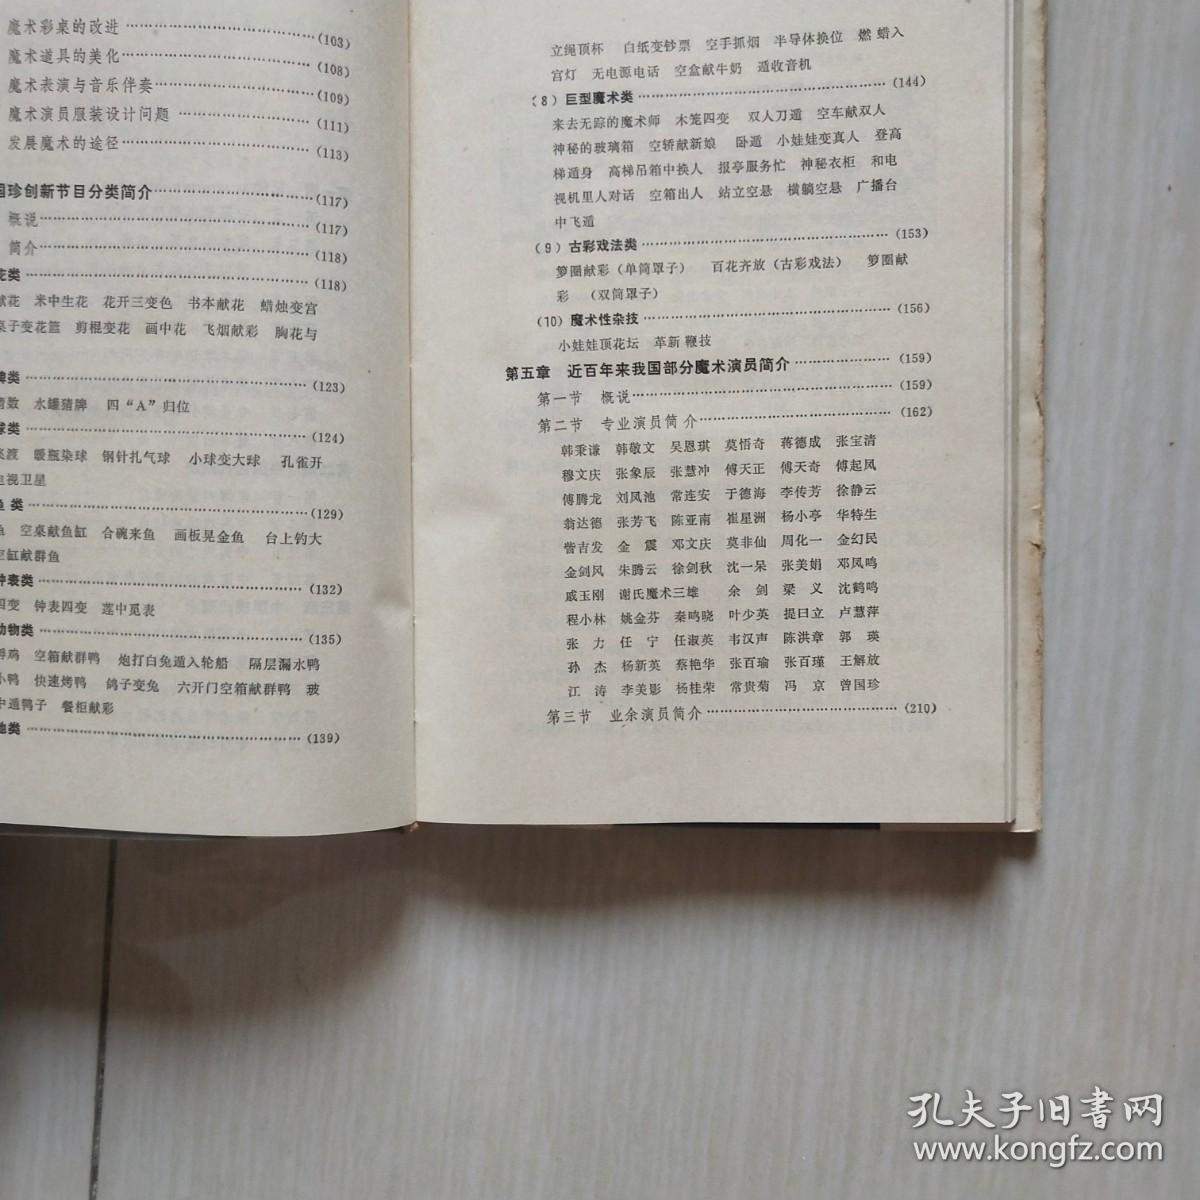 魔术彩桌的改进……(103)
魔术道具的美化……(108)
魔术表演与音乐伴奏……(109)
魔术演员服装设计问题……(111)
发展魔术的途径……(113)
国珍创新节目分类简介……(117)
概说……(117)
简介……(118)
花类……(118)
献花 米中生花 花开三变色 书本献花 蜡烛变宫
桌子变花篮 剪棍变花 画中花 飞烟献彩 胸花与
牌类……(123)
猜数 水罐猜牌 四“A”归位
球类……(124)
飞渡 暖瓶染球 钢针扎气球 小球变大球 孔雀开
电视卫星
鱼类……(129)
鱼 空桌献鱼缸 合碗来鱼 画板晃金鱼 台上钓大
空缸献群鱼
钟表类……(132)
四变 钟表四变 莲中觅表
动物类……(135)
鸡 空箱献群鸭 炮打白兔遁入轮船 隔层漏水鸭
小鸭 快速烤鸭 鸽子变兔 六开门空箱献群鸭 玻
中遁鸭子 餐柜献彩
他类……(139)
立绳顶杯 白纸变钞票 空手抓烟 半导体换位 燃蜡入
宫灯 无电源电话 空盒献牛奶 遁收音机
(8)巨型魔术类……(144)
来去无踪的魔术师 木笼四变 双人刀遁 空车献双人
神秘的玻璃箱 空轿献新娘 卧遁 小娃娃变真人 登高
梯遁身 高梯吊箱中换人 报亭服务忙 神秘衣柜 和电
视机里人对话 空箱出人 站立空悬 横躺空悬 广播台
中飞遁
(9)古彩戏法类……(153)
箩圈献彩(单筒罩子) 百花齐放(古彩戏法) 箩圈献
彩 (双筒罩子)
(10)魔术性杂技……(156)
小娃娃顶花坛 革新鞭技
第五章 近百年来我国部分魔术演员简介……(159)
第一节 概说……(159)
第二节 专业演员简介……(162)
韩秉谦 韩敬文 吴恩琪 莫悟奇 蒋德成 张宝清
穆文庆 张象辰 张慧冲 傅天正 傅天奇 傅起凤
傅腾龙 刘凤池 常连安 于德海 李传芳 徐静云
翁达德 张芳飞 陈亚南 崔星洲 杨小亭 华特生
訾吉发 金震 邓文庆 莫非仙 周化一 金幻民
金剑风 朱腾云 徐剑秋 沈一呆 张美娟 邓凤鸣
戚玉刚 谢氏魔术三雄 余剑 梁义 沈鹤鸣
程小林 姚金芬 秦鸣晓 叶少英 提日立 卢慧萍
张力 任宁 任淑英 韦汉声 陈洪章 郭瑛
孙杰 杨新英 蔡艳华 张百瑜 张百瑾 王解放
江涛 李美影 杨桂荣 常贵菊 冯京 曾国珍
第三节 业余演员简介……(210)
孔夫子旧书网
www.kongfz.com